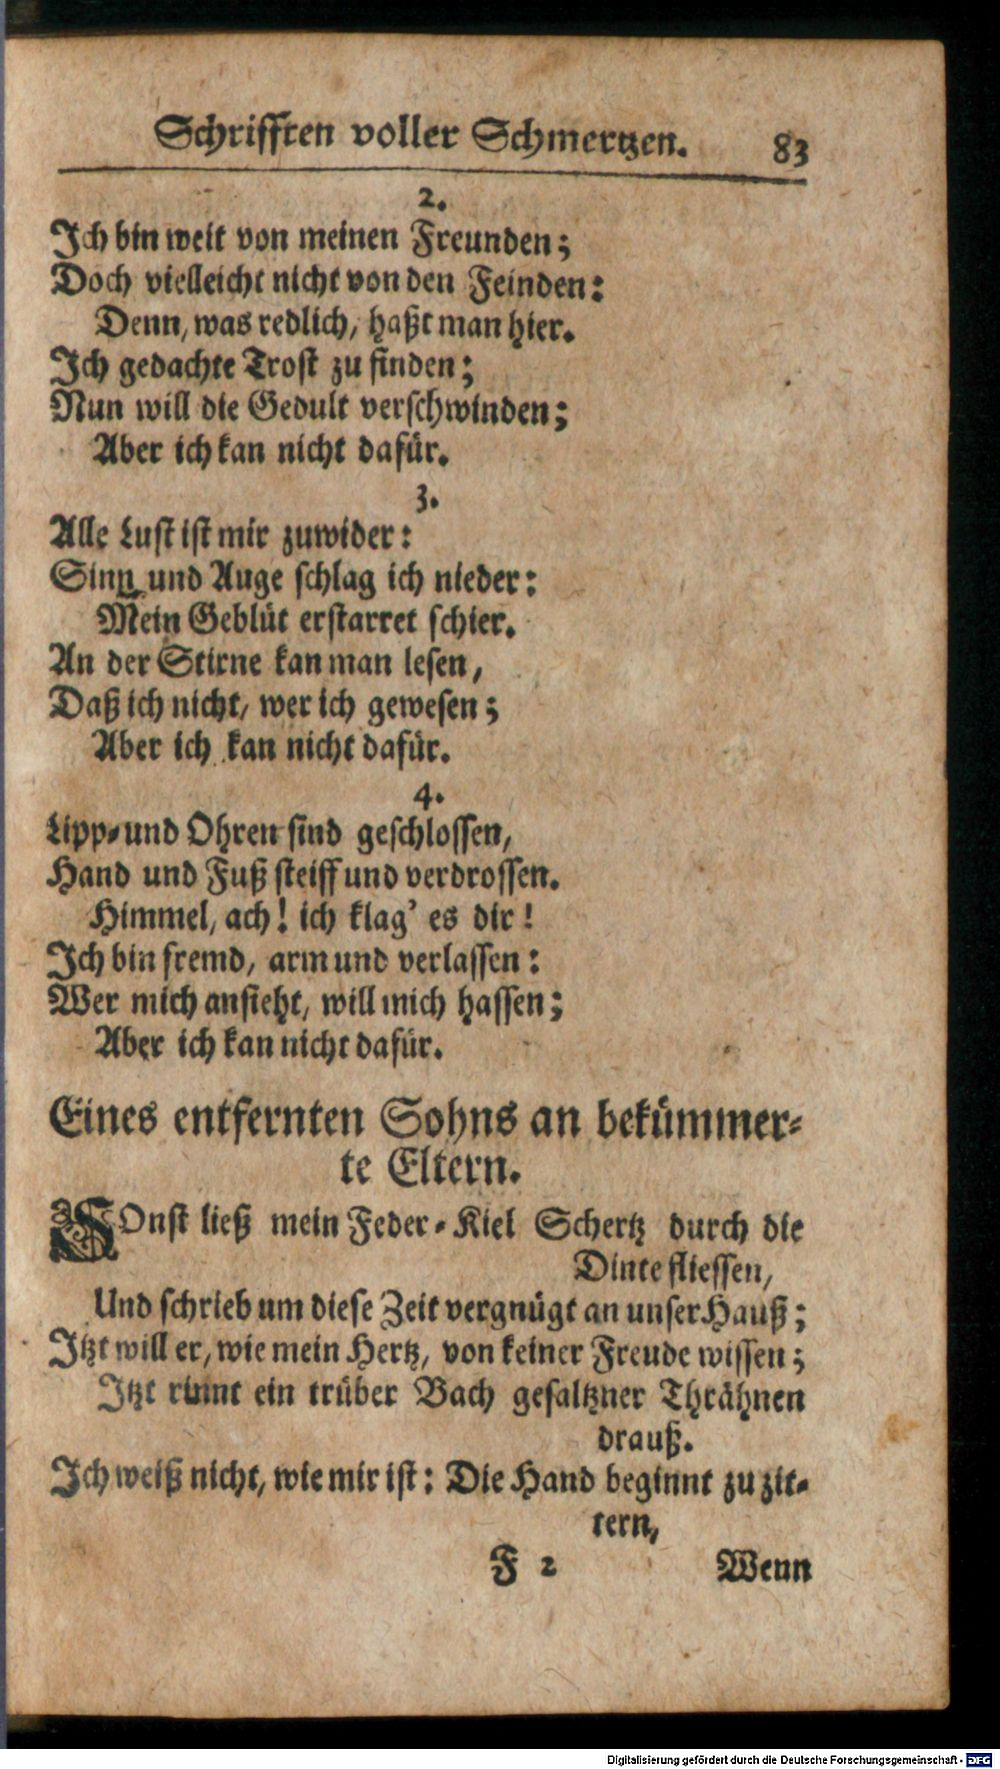 Schrifften voller Schmertzen. 83
2.
Ich bin weit von meinen Freunden;
Doch vielleicht nicht von den Feinden:
Denn, was redlich, haßt man hier.
Ich gedachte Trost zu finden;
Nun will die Gedult verschwinden;
Aber ich kan nicht dafür.
3.
Alle Lust ist mir zuwider:
Sinn und Auge schlag ich nieder:
Mein Geblüt erstarret schier.
An der Stirne kan man lesen,
Daß ich nicht, wer ich gewesen;
Aber ich kan nicht dafür.
4.
Lipp- und Ohren sind geschlossen,
Hand und Fuß steiff und verdrossen.
Himmel, ach! ich klag' es dir!
Ich bin fremd, arm und verlassen:
Wer mich ansieht, will mich hassen;
Aber ich kan nicht dafür.
Eines entfernten Sohns an bekümmer-
te Eltern.
SOnst ließ mein Feder-Kiel Schertz durch die
Dinte fliessen,
Und schrieb um diese Zeit vergnügt an unser Hauß;
Itzt will er, wie mein Hertz, von keiner Freude wissen;
Itzt rinnt ein trüber Bach gesaltzner Thrähnen
drauß.
Ich weiß nicht, wie mir ist: Die Hand beginnt zu zit-
tern,
F 2 Wenn
Digitalisierung gefördert durch die Deutsche Forschungsgemeinschaft - DFG